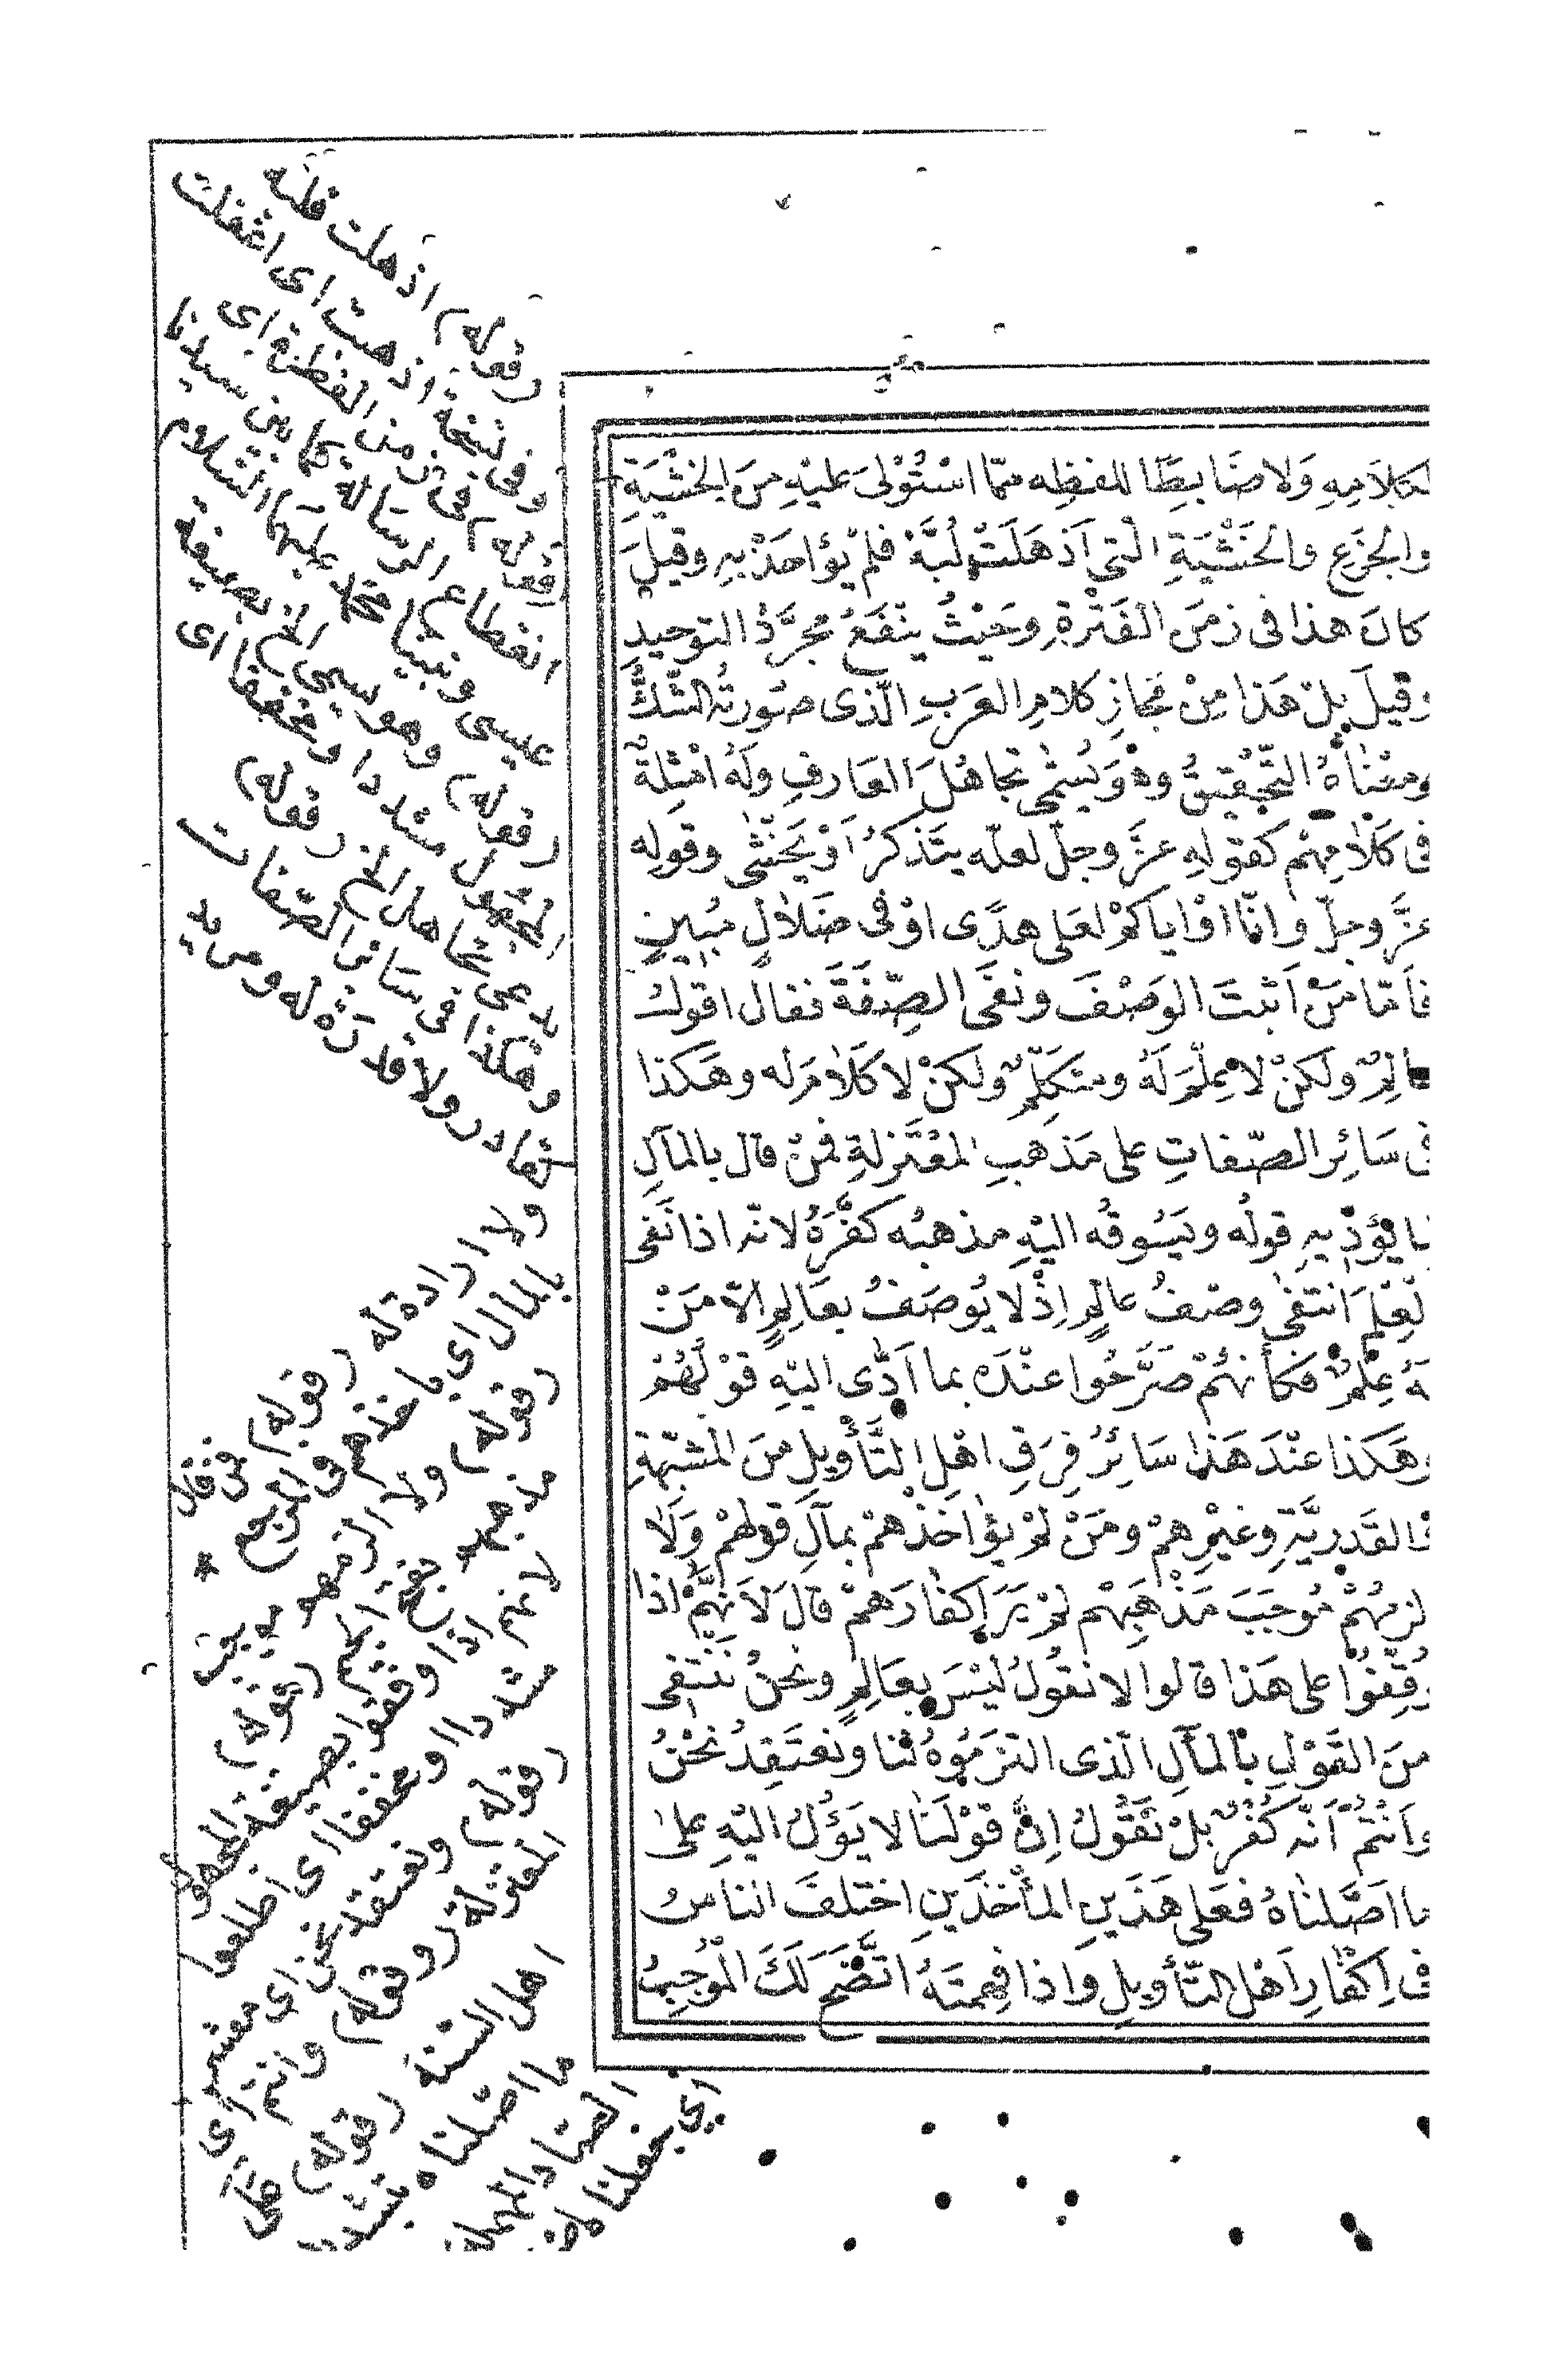 لكلامِهِ وَلا ضَابِطًا للفظِه ممّا اسْتُوْلىَ عليْهِ مِنَ الخَشْيَةِ
والجَزَعِ والخَشْيَةِ التي اَذهَلَتْ لُبَّهُ فلمْ يُؤاخَذْ بهِ وقيلَ
كانَ هذا فى زمَنِ الفَتْرةِ وحَيْثُ ينْفَعُ مجرَّدُ التوحيدِ
وقيلَ بلْ هَذا مِنْ مَجازِ كلامِ العَرَبِ الّذى صُورتُه الشّكُّ
ومعْناهُ التّحْقيقُ وهْوَ يُسَمّٰى تَجاهُلَ العَارفِ ولَهُ امْثِلةٌ
فى كَلَامِهِمْ كقولهِ عزَّ وجلّ لعلّه يتَذكرُ اَوْ يَخْشٰى وقولِه
عزَّ وجلّ وانّا اوْاياكمْ لعَلى هدًى اوْ فى ضَلاٰلٍ مُبِينٍ
فاَمّا مَنْ اَثبتَ الوَصْفَ ونفَى الصِّفَةَ فقالَ اقولُ
عالِمٌ ولَكنْ لا عِلْمَ لَهُ ومتكَلّمٌ ولكنْ لا كَلَامَ له وهَكذا
فى سَائِر الصّفاتِ على مَذهَبِ المعْتَزلةِ فمنْ قالَ بالمآلِ
لما يُؤدّيهِ قولُه ويَسُوقُه اليْهِ مذهبُه كفَّرَهُ لانّه اذا نَفى
العِلْمَ انتفٰى وصْفُ عالمٍ اِذْ لا يُوصَفُ بعَالِمٍ الاّ مَنْ
لهُ عِلْمٌ فكأنهُمْ صَرَّحُوا عنْدَه بما اَدّٰى اليْهِ قوْلُهُمْ
وهَكذا عنْدَ هَذا سَائِرُ فِرَقِ اهْلِ التَّأْويلِ منَ المُشبّهةِ
والقدريَّةِ وغيْرِهمْ ومَنْ لمْ يؤٰاخذْهمْ بمآلِ قولهمْ وَلَا
الزمهُمْ مُوجَبَ مَذْهَبِهمْ لمْ يَرَ اِكفٰارَهمْ قالَ لاَنهمْ اذا
وُقِّفُوا على هَذا قالوا لا نقُولُ ليْسَ بعَالِمٍ ونحنُ ننْتَفى
منَ القَوْلِ بالمآلِ الّذى التزَمُوهُ لنا ونعتَقِدُ نحْنُ
واَنْتُمْ اَنّه كُفْرٌ بلْ نَقُولُ اِنَّ قوْلَنَا لا يَؤُلُ اليْهِ علىٰ
ما اصَّلناهُ فعَلى هَذَينِ المأخَذَينِ اختلفَ الناسُ
فى اِكفٰارِ اَهْلِ التّأويلِ واذا فهِمتَهُ اتَّضَحَ لَكَ المُوجبُ
(قوله) اذهلت قلبه
وفى نسخة اذهبت اى اشغلت
(قوله) فى زمن الفطرة اى
انقطاع الرسالة كما بين سيدنا
عيسى ونبينا محمد عليهما السلام
(قوله) وهو يسمى الخ بصيغة
المجهول مشددا ومخففا اى
يدعى تجاهل الخ (قوله)
وهكذا فى سائر الصفات
قادر ولا قدرة له ومريد
ولا ارادة له (قوله) فمن قال
بالمال اى بما خذهم فى المرجع *
(قوله) ولا الزمهم موجب
مذهبهم بفتح الجيم (قوله)
لانهم اذا وقفوا بصيغة المجهول
مشددا او مخففا اى اطلعوا
(قوله) ونعتقد نحن اى معشر
المعتزلة (وقوله) وانتم اى
اهل السنة (قوله) على
ما اصلناه بتشديد
الصاد المهملة
اى جعلناه